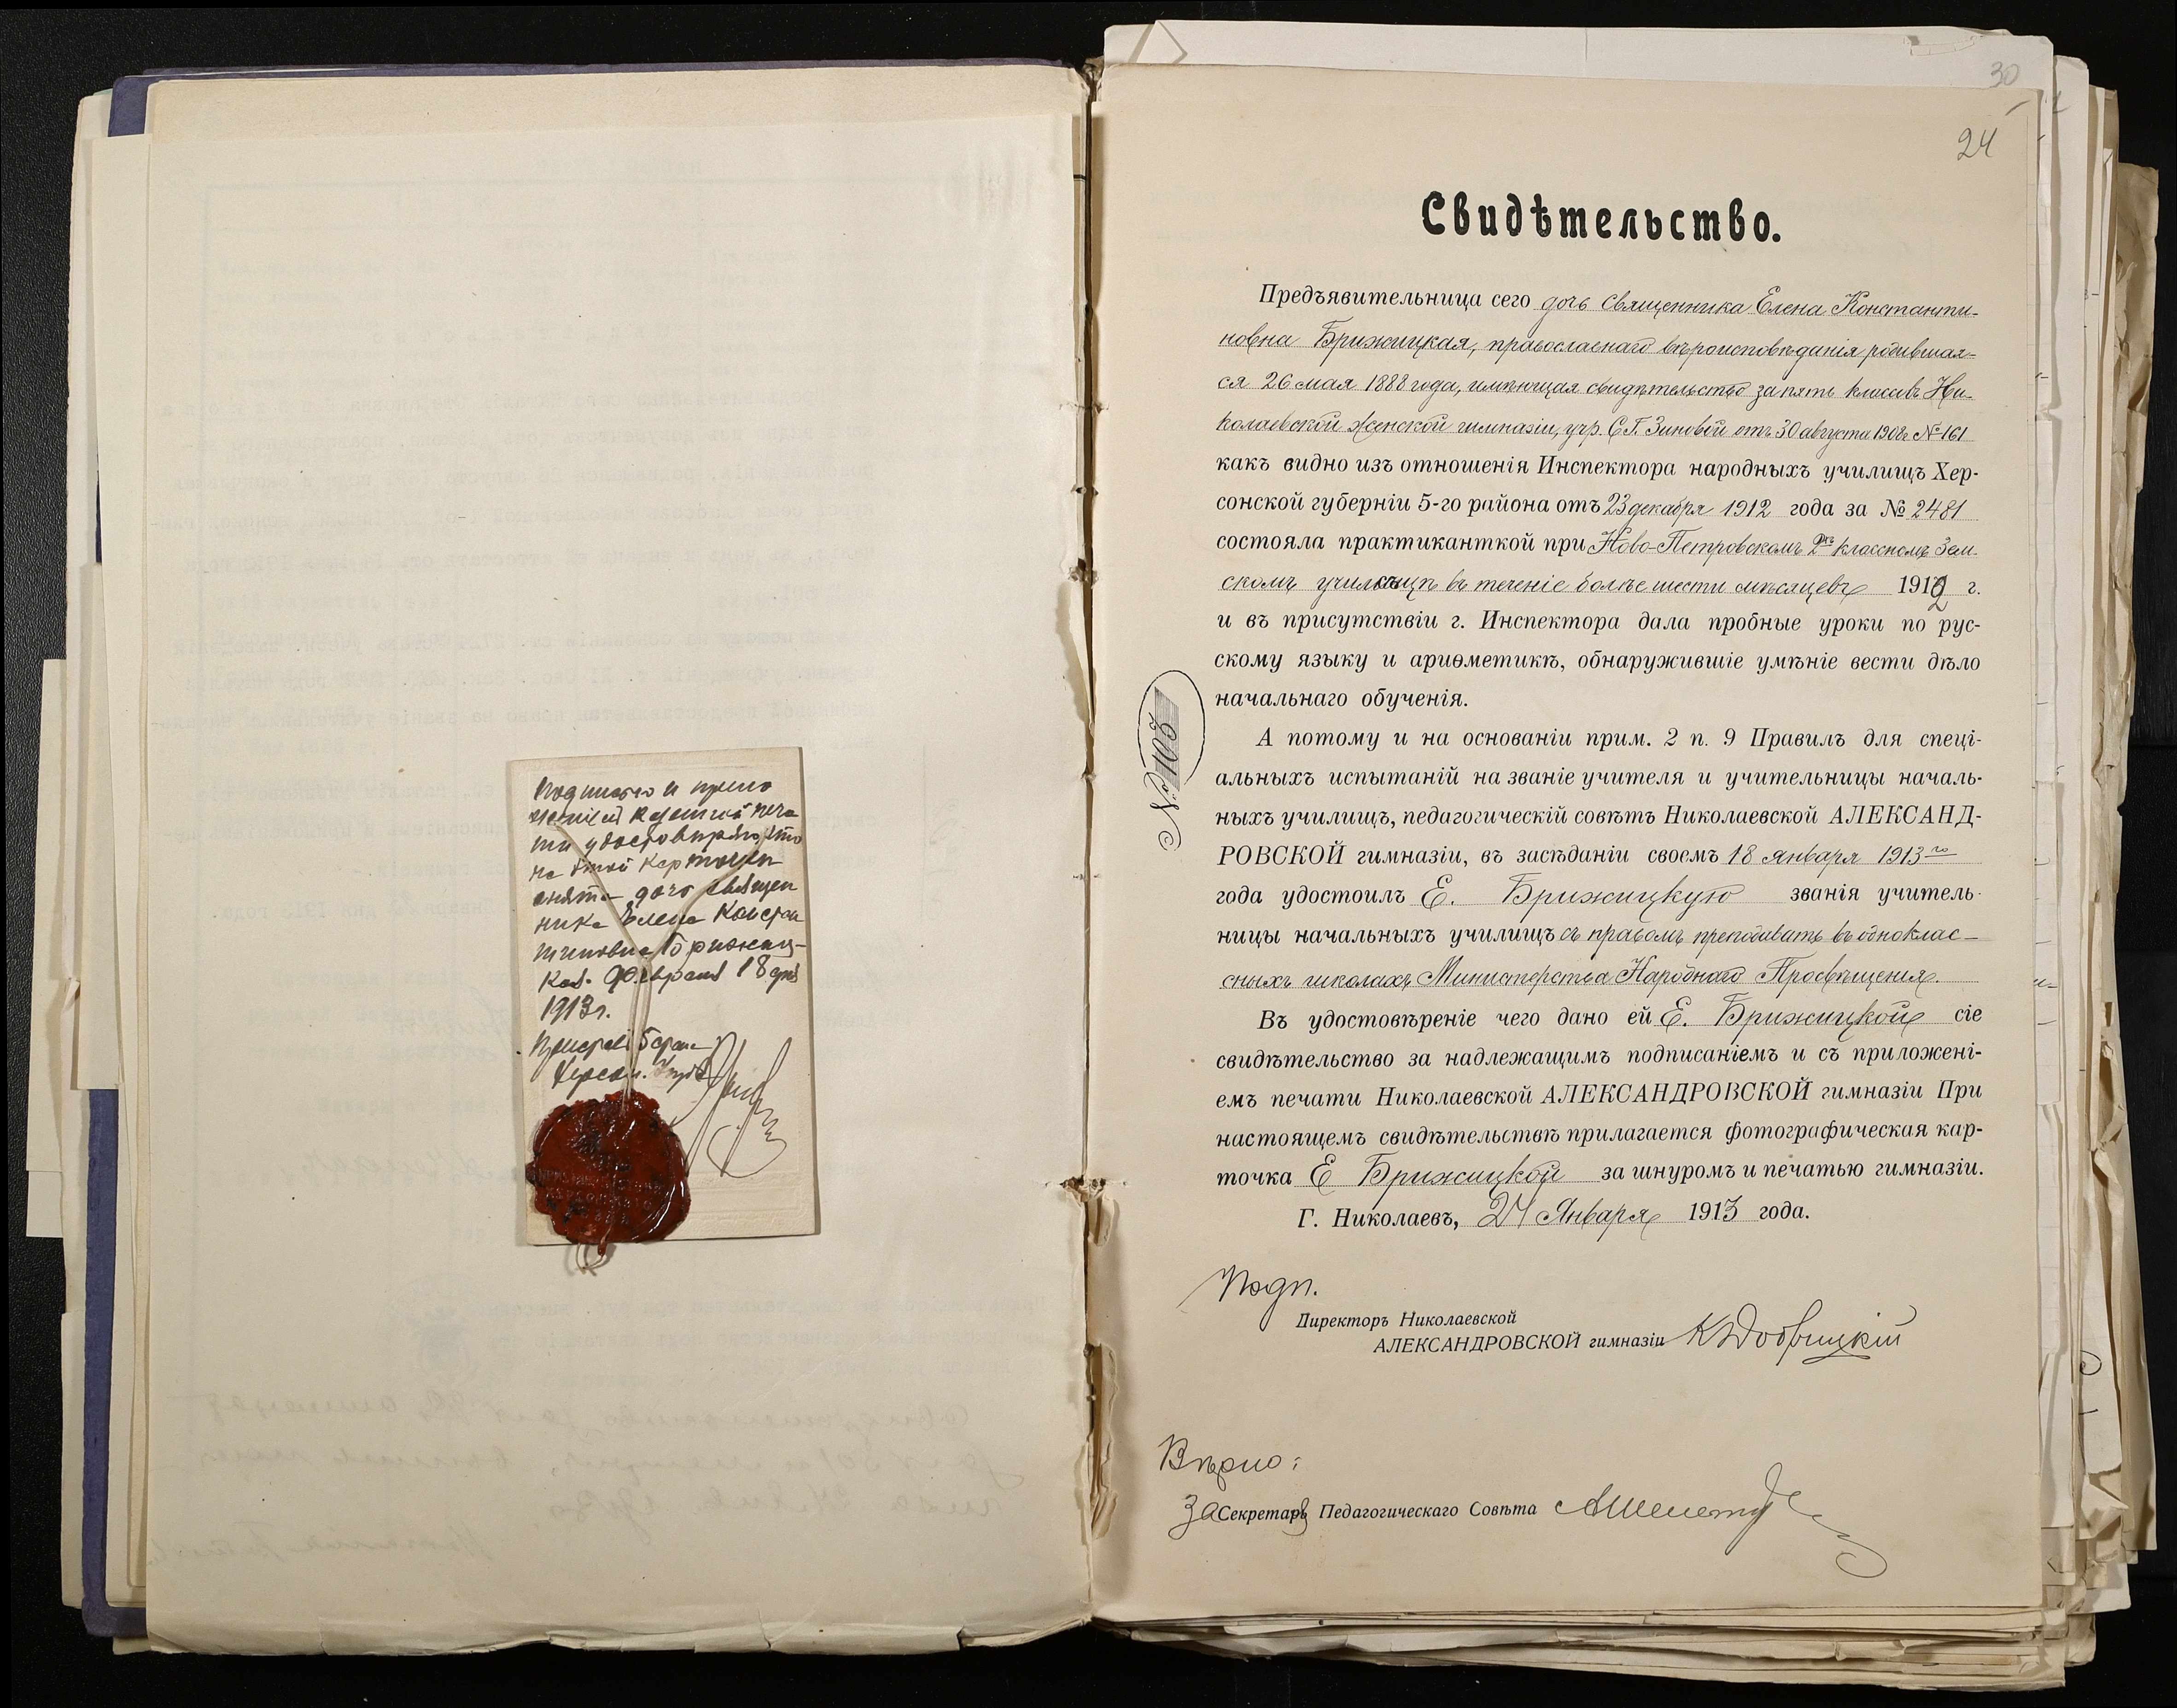 Подписью и прило
женіем казенной печа
ти удостовѣряю, что
на этой карточкѣ
снята дочь священ
ника Елена Констан
тиновна Брижиц-
кая. Февраля 18 дня
1913 г.
Приставъ 
Херсон. 
30
24
Свидѣтельство.
Предъявительница сего дочь священника Елена Константи-
новна Брижицкая, православнаго вѣроисповѣданія родившая-
ся 26 мая 1888 года, имѣющая свидѣтельство за пять классовъ Ни-
колаевской женской гимназіи, учр. С.Г. Зиновой отъ 30 августа 1908 г. № 161
какъ видно изъ отношенія Инспектора народныхъ училищъ Хер-
сонской губерніи 5-го района отъ 23 декабря 1912 года за № 2481
состояла практиканткой при Ново-Петровскомъ 2хъ классномъ Зем-
скомъ училищѣ въ теченіе болѣе шести мѣсяцевъ 1912 г.
и въ присутствіи г. Инспектора дала пробные уроки по рус-
скому языку и ариѳметикѣ, обнаружившіе умѣніе вести дѣло
начальнаго обученія.
№ 103
А потому и на основаніи прим. 2 п. 9 Правилъ для спеці-
альныхъ испытаній на званіе учителя и учительницы началь-
ныхъ училищъ, педагогическій совѣтъ Николаевской АЛЕКСАНД-
РОВСКОЙ гимназіи, въ засѣданіи своемъ 18 января 1913 го
года удостоилъ Е. Брижицкую званія учитель-
ницы начальныхъ училищъ съ правомъ преподавать въ одноклас-
сныхъ школахъ Министерства Народнаго Просвѣщенія.
Въ удостовѣреніе чего дано ей Е. Брижицкой сіе
свидѣтельство за надлежащимъ подписаніемъ и съ приложені-
емъ печати Николаевской АЛЕКСАНДРОВСКОЙ гимназіи При
настоящемъ свидѣтельствѣ прилагается фотографическая кар-
точка Е Брижицкой за шнуромъ и печатью гимназіи.
Г. Николаевъ, 24 Января 1913 года.
Подп.
Директоръ Николаевской
АЛЕКСАНДРОВСКОЙ гимназіи К Добрицкій
Вѣрно:
За Секретаря Педагогическаго Совѣта